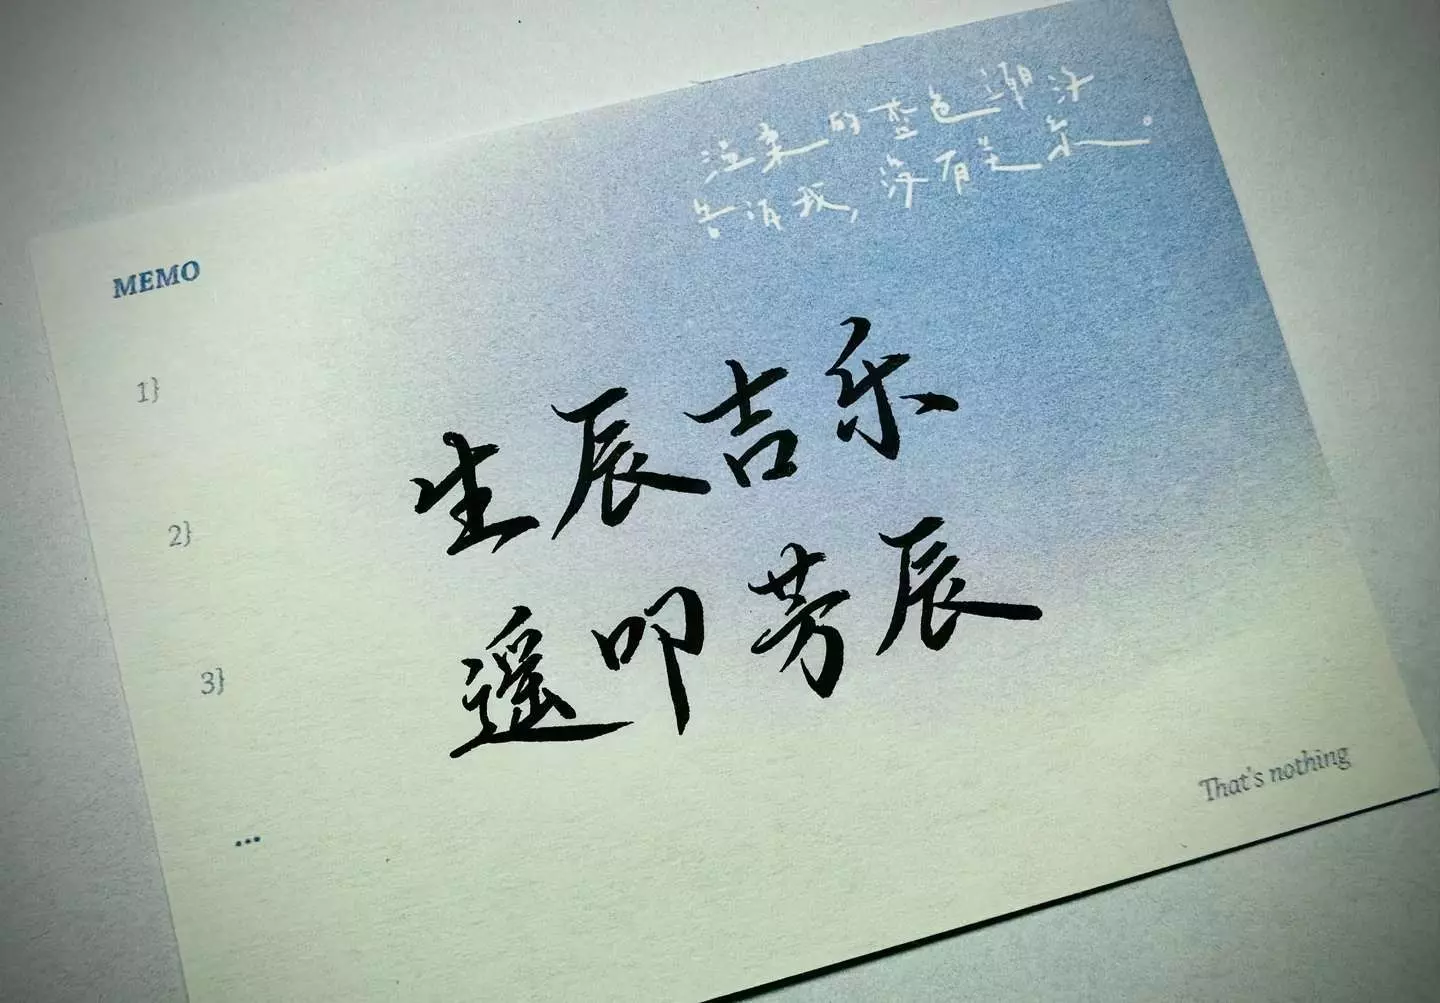 温柔的蓝色潮汐
告诉我，没有关系。
MEMO
1}
生辰吉乐
2}
遥叩芳辰
3}
...
That's nothing